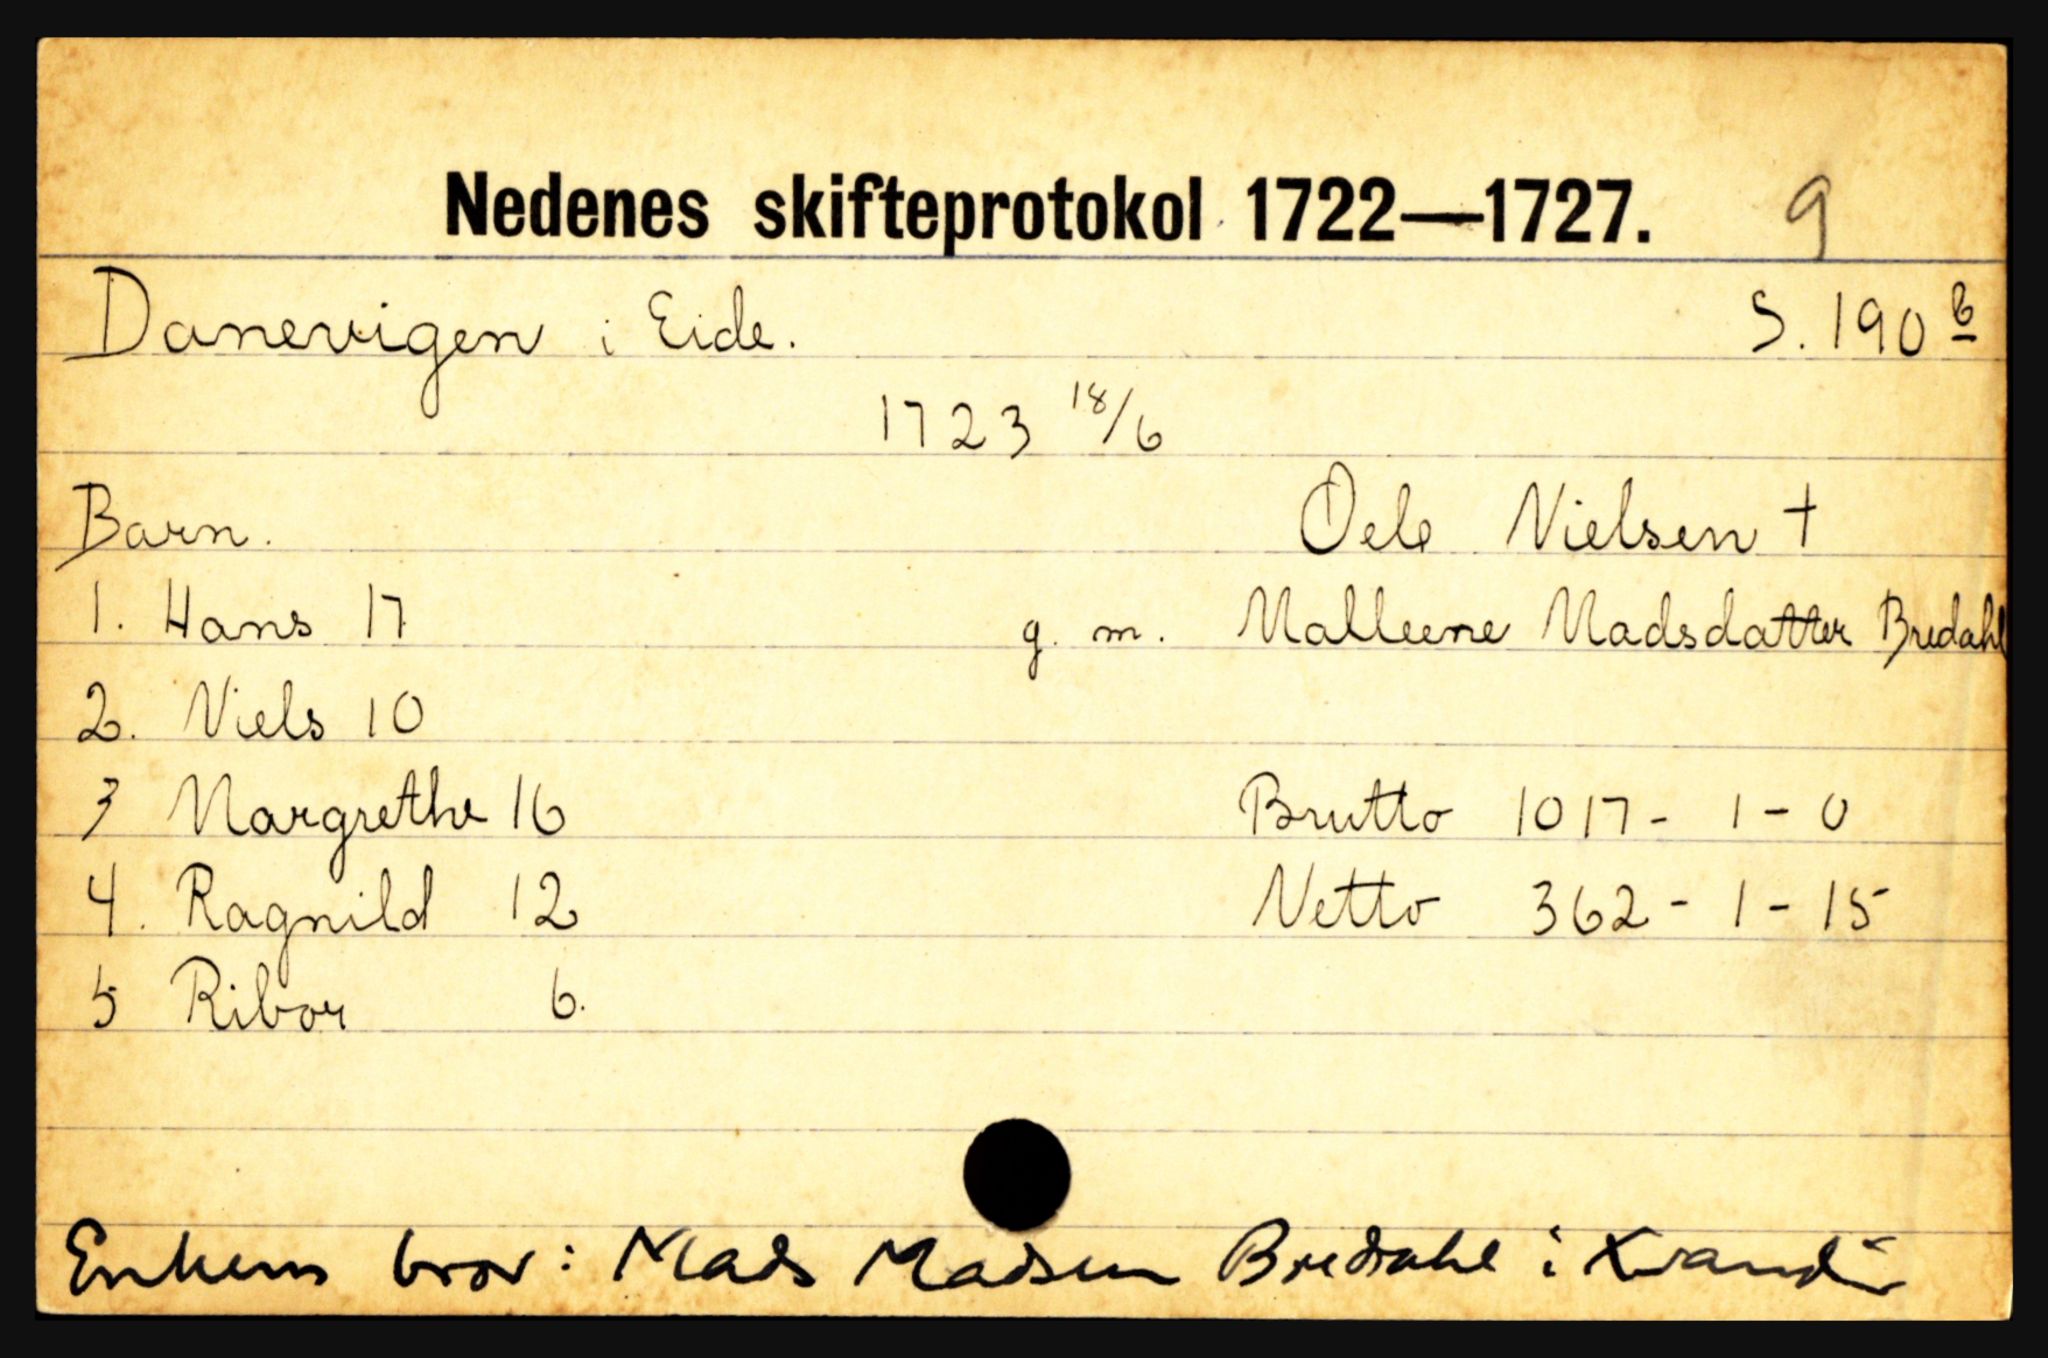 Nedenes skifteprotokol 1722—1727. 9
Danevigen i Eide. S. 190 b
1723 18/6
Barn. Oele Nielsen †
1. Hans 17 g. m. Malleene Madsdatter Bredahl
2. Niels 10
3 Margrethe 16 Brutto 1017 - 1 - 0
4. Ragnild 12 Netto 362 - 1 - 15
5 Ribor 6.
Enkens bror: Mads Madsen Bredahl i